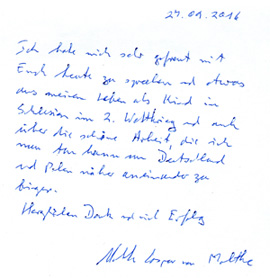 27.09.2016
Ich habe mich sehr gefreut mit
Euch heute zu sprechen und etwas
aus meinem Leben als Kind in
Schlesien im 2. Weltkrieg und auch
über die schöne Arbeit, die ich
nun tun kann um Deutschland
und Polen näher aneinander zu
bringen.
Herzlichen Dank und viel Erfolg
von Moltke